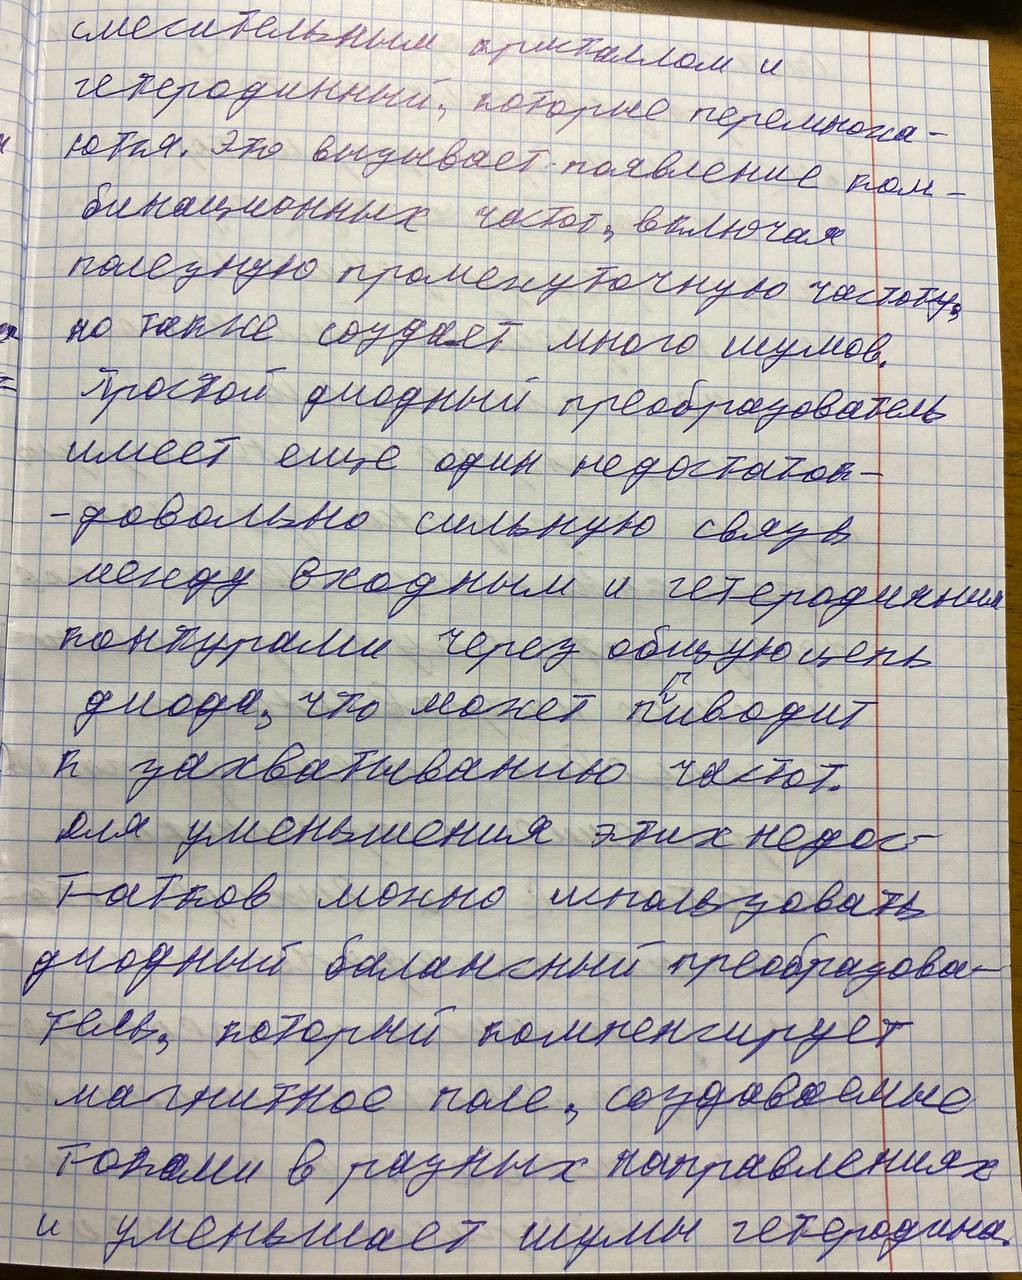 смесительным кристаллом и
гетеродинный, которые перемножа-
ются. Это вызывает появление ком-
бинационных частот, включая
полезную промежуточную частоту,
но также создает много шумов.
Простой диодный преобразователь
имеет еще один недостаток-
-довольно сильную связь
между входным и гетеродинным
контурами через общую цепь
диода, что может приводит
к захватыванию частот.
Для уменьшения этих недос-
татков можно использовать
диодный балансный преобразова-
тель, который компенсирует
магнитное поле, создаваемые
токами в разных направлениях
и уменьшает шумы гетеродина.